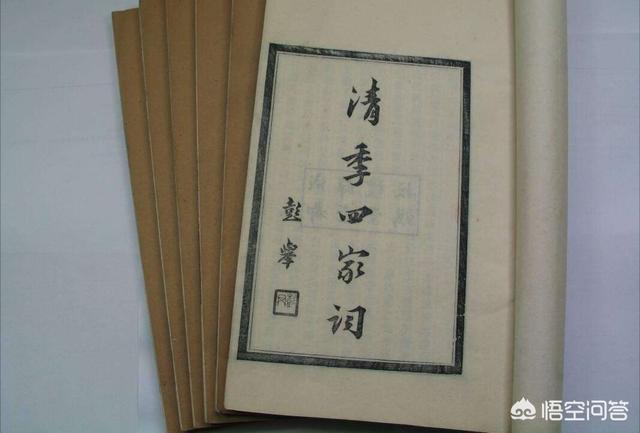 清季四家词
彭举
悟空问答